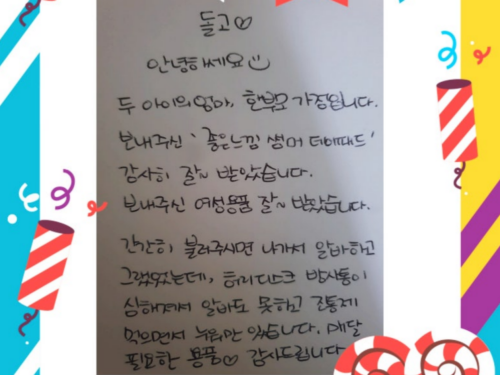 돌고♡
안녕하세요
두 아이의 엄마, 한부모 가정입니다.
보내주신 '좋은느낌 썸머 데이패드'
감사히 잘~ 받았습니다.
보내주신 여성용품 잘~ 받았습니다.
간간히 불러주시면 나가서 알바하고
그랬었는데, 허리디스크 방사통이
심해져서 알바도 못하고 진통제
먹으면서 누워만 있습니다. 매달
필요한 용품♡ 감사드립니다